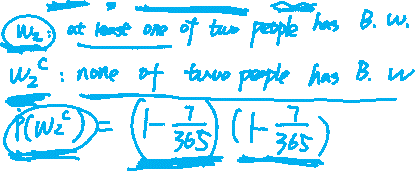 W₂: at least one of two people has B. W.
W₂ᶜ: none of two people has B. W
P(W₂ᶜ) = (1-7/365) (1-7/365)